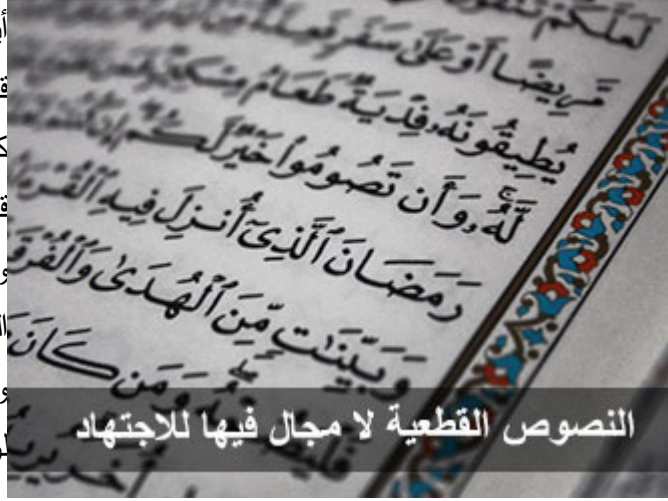 لَعَلَّكُمْ تَتَّقُونَ
مَّرِيضًا أَوْ عَلَىٰ سَفَرٍ فَعِدَّةٌ
يُطِيقُونَهُۥ فِدْيَةٌ طَعَامُ مِسْكِينٍ
لَّهُۥ وَأَن تَصُومُوا۟ خَيْرٌ لَّكُمْ إِن
رَمَضَانَ ٱلَّذِىٓ أُنزِلَ فِيهِ ٱلْقُرْءَا
وَبَيِّنَٰتٍ مِّنَ ٱلْهُدَىٰ وَٱلْفُرْقَ
وَمَن كَانَ
النصوص القطعية لا مجال فيها للاجتهاد